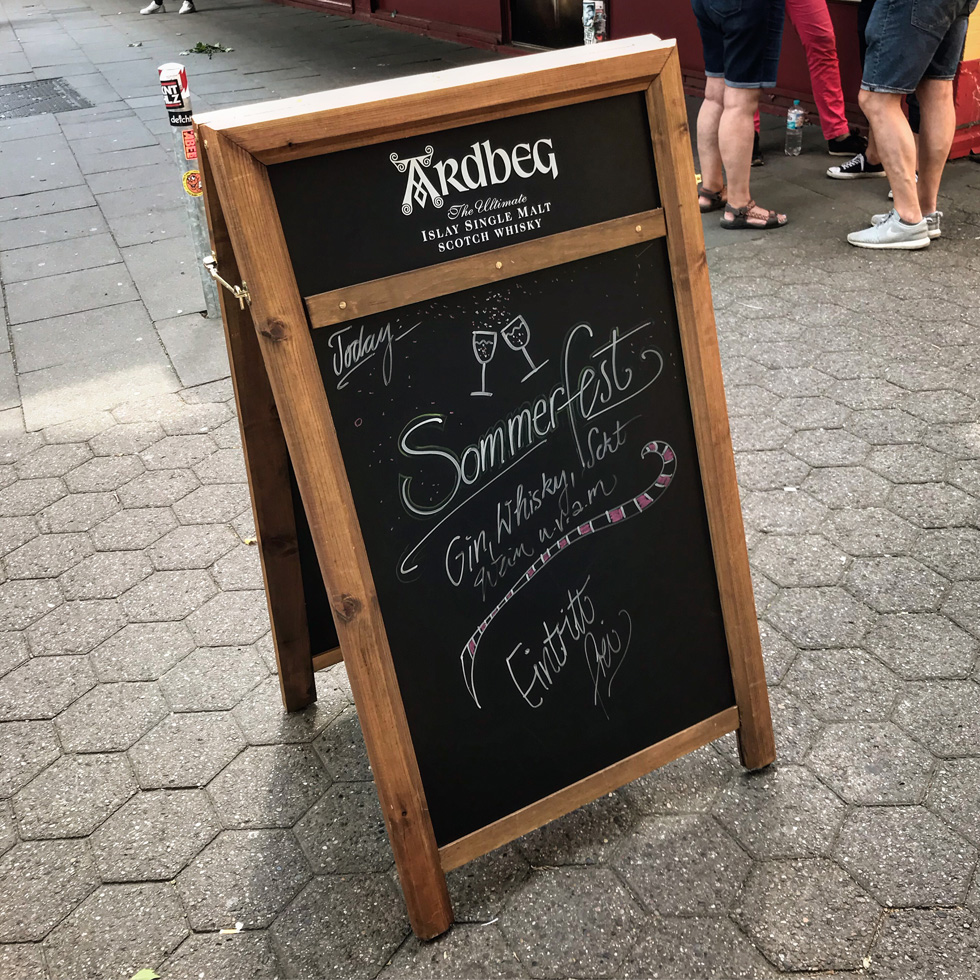 ARdbEG
The Ultimate
ISLAY SINGLE MALT
SCOTCH WHISKY
Today
Sommerfest
Gin, Whisky, Sekt
u.v.a.m
Eintritt
frei